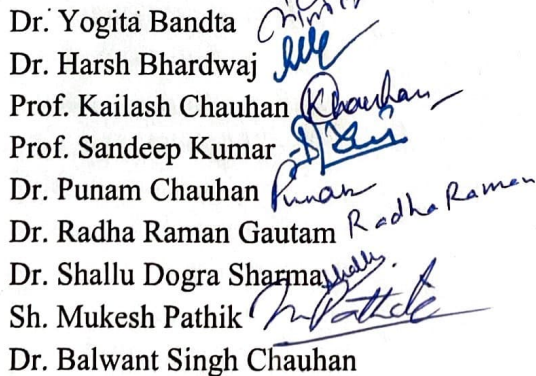 Dr. Yogita Bandta
Dr. Harsh Bhardwaj
Prof. Kailash Chauhan Kchauhan
Prof. Sandeep Kumar
Dr. Punam Chauhan Punam
Dr. Radha Raman Gautam Radha Raman
Dr. Shallu Dogra Sharma Shallu
Sh. Mukesh Pathik MPathik
Dr. Balwant Singh Chauhan